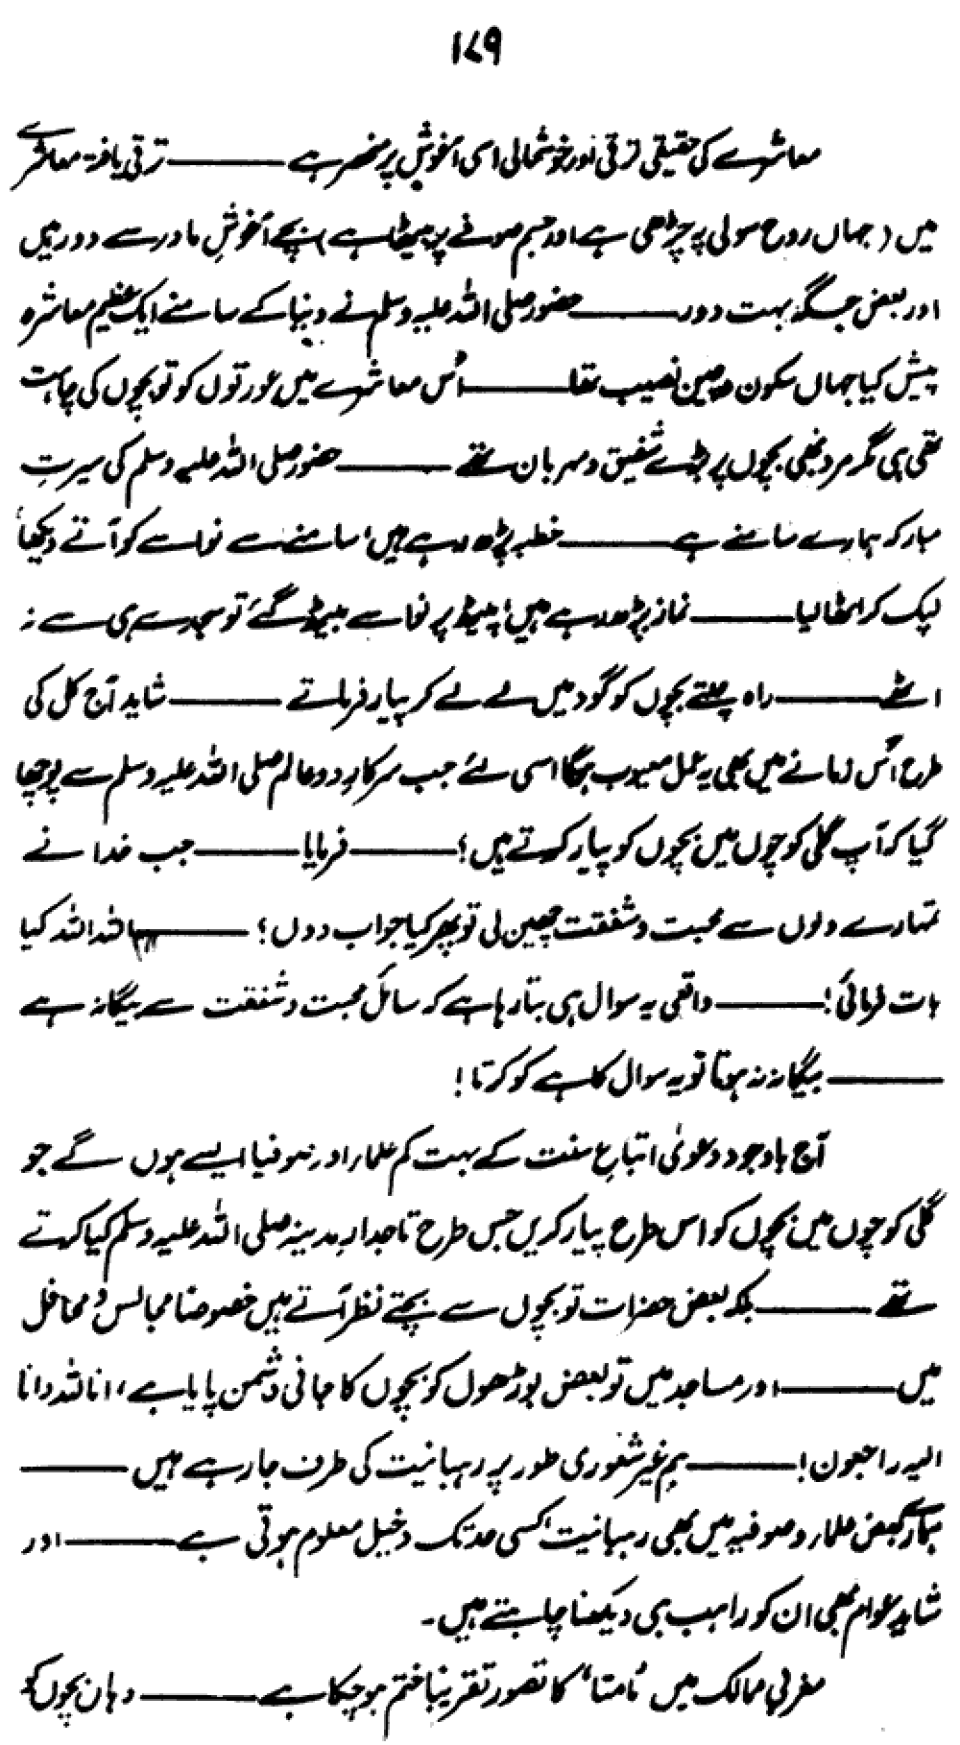 ۱۷۹
معاشرے کی حقیقی ترقی اور خوشحالی اسی آغوش پر منحصر ہے ——— ترقی یافتہ معاشرے
میں (جہاں روح سولی پہ چڑھی ہے اور جسم صوفے پر بیٹھا ہے) بچے آغوشِ مادر سے دور ہیں
اور بعض جگہ بہت دور ——— حضور صلی اللہ علیہ وسلم نے دنیا کے سامنے ایک عظیم معاشرہ
پیش کیا جہاں سکون و چین نصیب تھا ——— اُس معاشرے میں عورتوں کو تو بچوں کی چاہت
تھی ہی مگر مرد بھی بچوں پر بڑے شفیق و مہربان تھے ——— حضور صلی اللہ علیہ وسلم کی سیرتِ
مبارکہ ہمارے سامنے ہے ——— خطبہ پڑھ رہے ہیں، سامنے سے نواسے کو آتے دیکھا،
لپک کر اٹھا لیا ——— نماز پڑھ رہے ہیں، پیٹھ پر نواسے بیٹھ گئے تو سجدے ہی سے نہ
اٹھے ——— راہ چلتے بچوں کو گود میں لے لے کر پیار فرماتے ——— شاید آج کل کی
طرح اُس زمانے میں بھی یہ عمل معیوب ہوگا اسی لئے جب سرکارِ دو عالم صلی اللہ علیہ وسلم سے پوچھا
گیا کہ آپ گلی کوچوں میں بچوں کو پیار کرتے ہیں؟ ——— فرمایا ——— جب خدا نے
تمہارے دلوں سے محبت و شفقت چھین لی تو پھر کیا جواب دوں؟ ——— اللہ اللہ کیا
بات فرمائی! ——— واقعی یہ سوال ہی بتا رہا ہے کہ سائل محبت و شفقت سے بیگانہ ہے
——— بیگانہ نہ ہوتا تو یہ سوال کاہے کو کرتا!
آج باوجود دعویٰ اتباعِ سنت کے بہت کم علماء اور صوفیا ایسے ہوں گے جو
گلی کوچوں میں بچوں کو اس طرح پیار کریں جس طرح تاجدارِ مدینہ صلی اللہ علیہ وسلم کیا کرتے
تھے ——— بلکہ بعض حضرات تو بچوں سے بچتے نظر آتے ہیں خصوصاً مجالس و محافل
میں ——— اور مساجد میں تو بعض بوڑھوں کو بچوں کا جانی دشمن پایا ہے، انا للہ وانا
الیہ راجعون! ——— ہم غیر شعوری طور پر رہبانیت کی طرف جا رہے ہیں ———
ہمارے بعض علماء و صوفیہ میں بھی رہبانیت کسی حد تک دخیل معلوم ہوتی ہے ——— اور
شاید عوام بھی ان کو راہب ہی دیکھنا چاہتے ہیں۔
مغربی ممالک میں ’مامتا‘ کا تصور تقریباً ختم ہو چکا ہے ——— وہاں بچوں کو